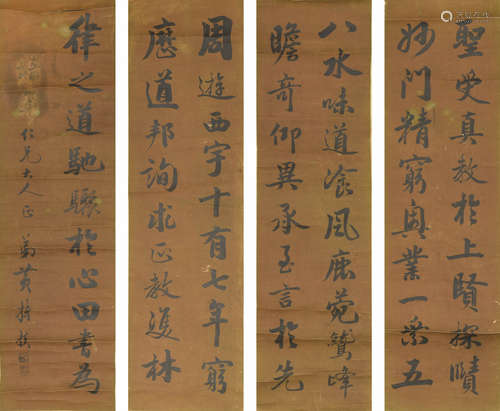 聖受真教於上賢探賾
妙門精窮奧業一乘五
八水味道飡風鹿菀鷲峰
瞻奇仰異承至言於先
周遊西宇十有七年窮
歷道邦詢求正教雙林
律之道馳驟於心田書為
仁兄大人正 弟黃